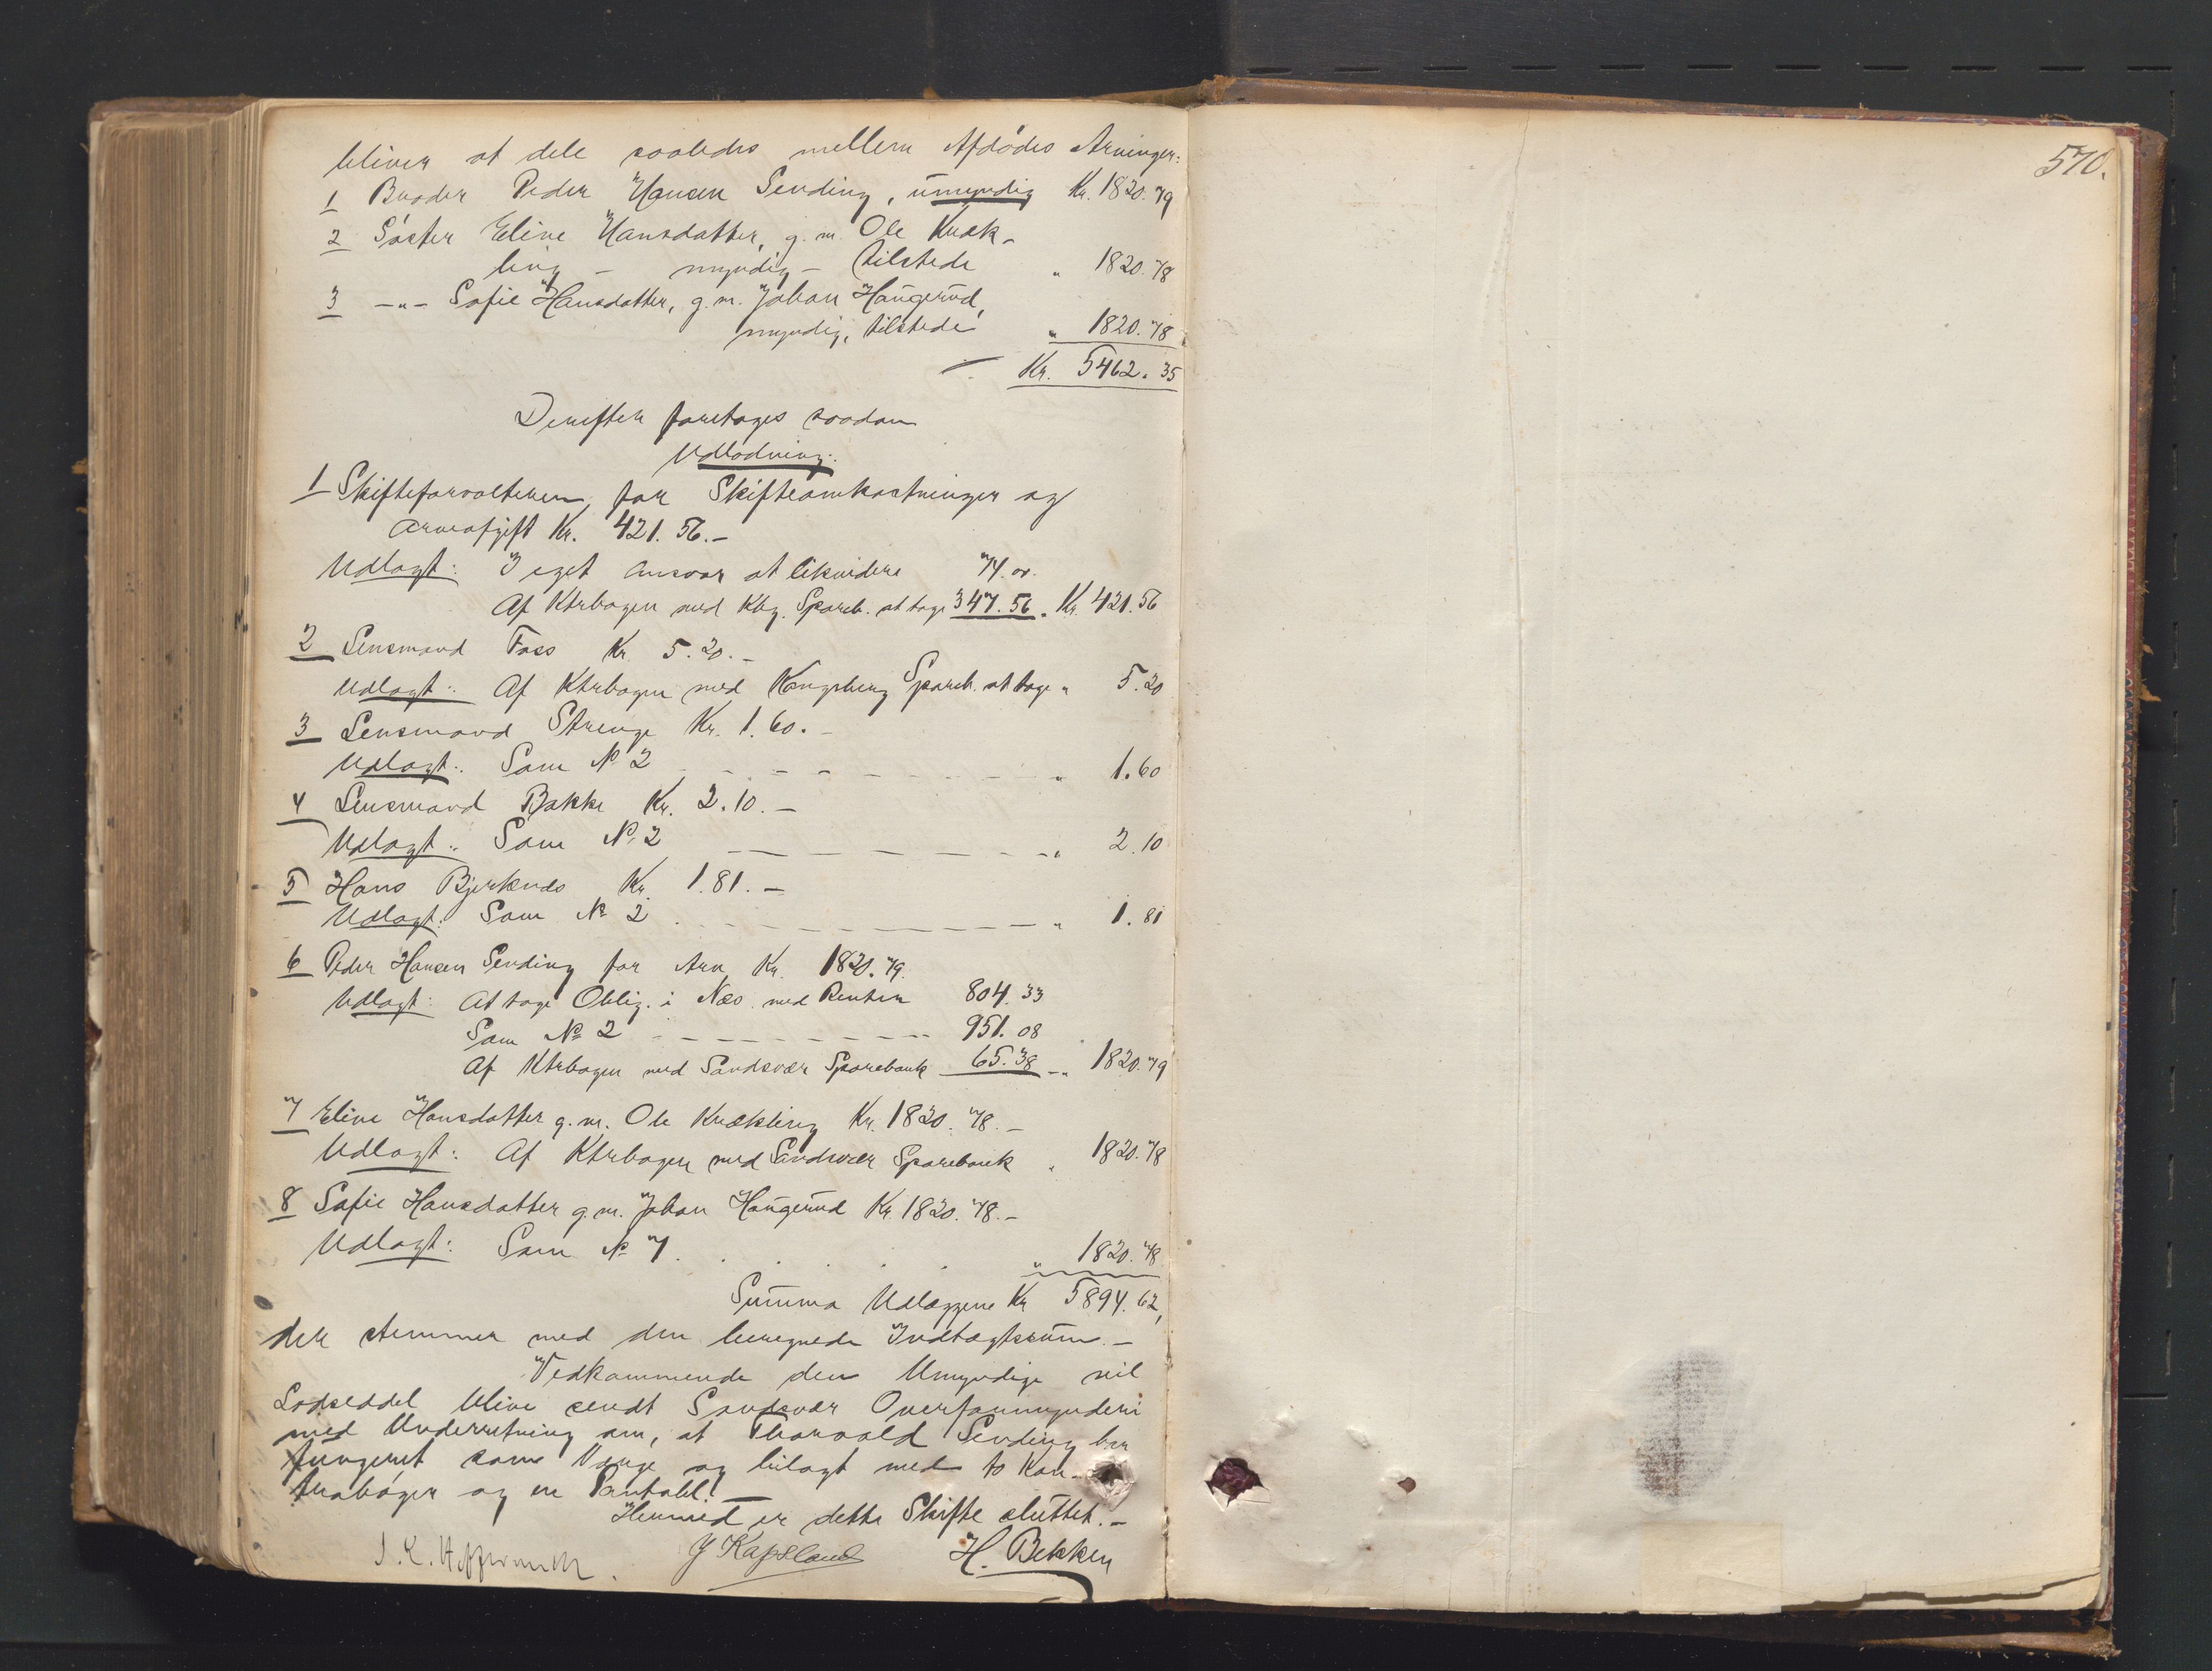 bliver at dele saaledes mellem Afdødes Arvinger:
1 Broder Peder Hansen Sending, umyndig Kr. 1820.79
2 Søster Eline Hansdatter, g. m. Ole Kræk-
ling – myndig – tilstede " 1820.78
3 –"– Sofie Hansdatter, g. m. Johan Haugerud,
myndig, tilstede " 1820.78
Kr. 5462.35
Derefter foretages saadan
Udlodning:
1 Skifteforvalteren for Skifteomkostninger og
Arveafgift Kr. 421.56.–
Udlagt: I eget Ansvar at likvidere 74. or.
Af Ktrbogen med Kbg. Spareb. at tage 347.56. Kr. 421.56
2 Lensmand Foss Kr. 5.20.–
Udlagt: Af Ktrbogen med Kongsberg Spareb. at tage " 5.20
3 Lensmand Strenge Kr. 1.60.–
Udlagt: Som № 2 " 1.60
4 Lensmand Bakke Kr. 2.10.–
Udlagt: Som № 2 " 2.10
5 Hans Bjerknes Kr. 1.81.–
Udlagt: Som № 2 " 1.81
6 Peder Hansen Sending for Arv Kr. 1820.79.
Udlagt: At tage Oblig. i Næs med Renter 804.33
Som № 2 951.08
Af Ktrbogen med Sandsvær Sparebank 65.38 –" 1820.79
7 Eline Hansdatter g. m. Ole Krækling Kr. 1820.78.–
Udlagt: Af Ktrbogen med Sandsvær Sparebank " 1820.78
8 Sofie Hansdatter g. m. Johan Haugerud Kr. 1820.78.–
Udlagt: Som № 7 " 1820.78
Summa Udlæggene Kr 5894.62,
der stemmer med den beregnede Indtægtssum.–
Vedkommende den Umyndige vil
Lodseddel blive sendt Sandsvær Overformynderi
med Underretning om, at Thorvald Sending har
fungeret som Værge og bilagt med to Kon-
trabøger og en Pantobl.
Hermed er dette Skifte sluttet.–
J. Kapsland H. Bekken
570.